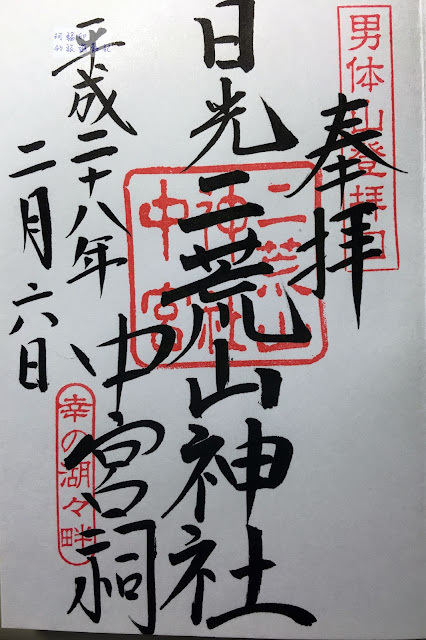 男体山登拝口
奉拝
日光二荒山神社
二荒山
神社
中宮
中宮祠
幸の湖々畔
平成二十八年
二月六日